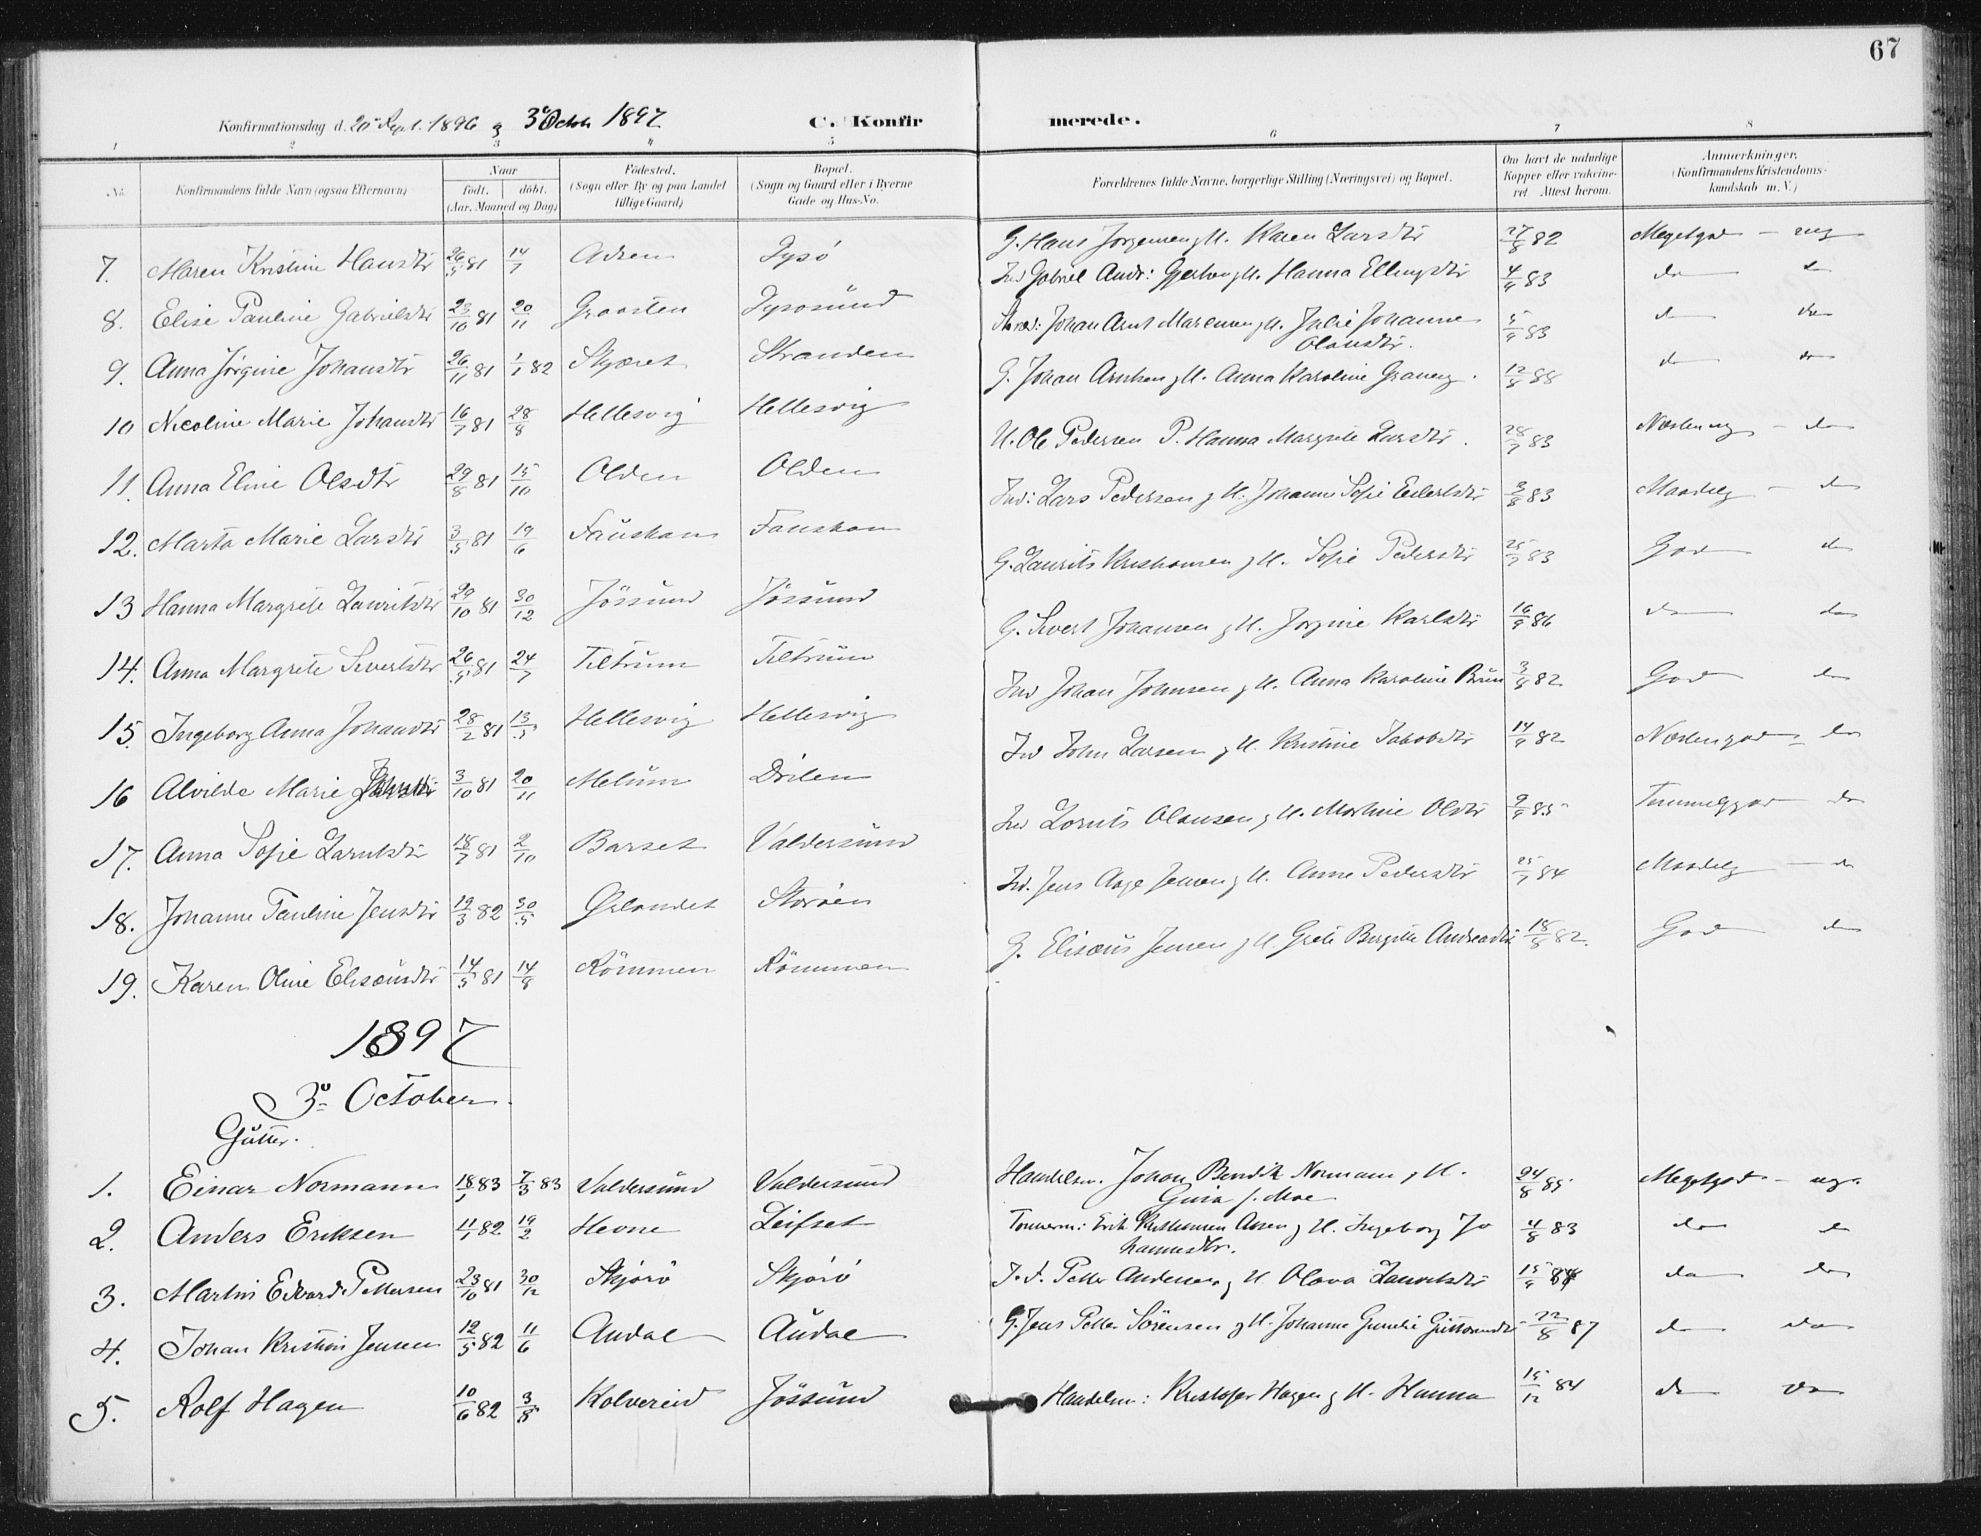 67
Konfirmationsdag d. 20 Sept. 1896 & 3 Octob 1897
C. Konfirmerede.
1 2 3 4 5 6 7 8
No. Konfirmandens fulde Navn (ogsaa Efternavn) Naar født, døbt. (Aar, Maaned og Dag) Fødested, (Sogn eller By og paa Landet tillige Gaard) Bopæl. (Sogn og Gaard eller i Byerne Gade og Hus-No. Forældrenes fulde Navne, borgerlige Stilling (Næringsvei) og Bopæl. Om havt de naturlige Kopper eller vakcineret Attest herom. Anmærkninger. (Konfirmandens Kristendomskundskab m. V.)
7. Maren Kristine Hansdtr 26/5 81 14/7 Adsen Jysø G. Hans Jørgensen, H. Karen Larsdtr 27/8 82 Megetgod - ug
8. Elise Pauline Gabrielsdtr 23/10 81 20/11 Graasten Jysøsund Ind Gabriel Andr: H. Hanna Ellingsdtr 4/9 83 do do
9. Anna Jørgine Johansdtr 26/11 81 1/1 82 Skjæret Stranden Johan Arnt H. Julie Johanne Olausdtr. 5/9 83 do do
10 Nicoline Marie Johansdtr 16/7 81 28/8 Hellesvig Hellesvig G. Johan Arntsen, H. Anna Karoline Graneng. 12/8 88 do do
11. Anna Eline Olsdtr 29/8 81 15/10 Olden Olden U. Ole Pedersen P. Hanna Margrete Larsdtr. 28/7 83 - do
12. Marta Marie Larsdtr 3/5 81 19/6 Fauskan Fauskan Ind: Lars Pedersen, H. Johanne Sofie Eilertsdtr 3/8 83 Maadelig - do
13 Hanna Margrete Lauritsdtr 29/10 81 30/12 Jøssund Jøssund G. Laurits Kristiansen, H. Sofie Pedersdtr 25/7 83 God do
14. Anna Margrete Sivertsdtr 26/5 81 24/7 Teltrum Teltrum G. Sivert Johansen, H. Jørgine Karlsdtr 16/9 86 do do
15. Ingeborg Anna Johansdtr 28/2 81 13/5 Hellesvig Hellesvig Ind Johan Johnsen, H. Anna Karoline Brun 3/8 82 God do
16 Alvilde Marie 3/10 81 20/11 Melum Drilen Ind John Larsen, H. Kristine Jakobsdtr 14/9 82 Næstengod - do
17. Anna Sofie Larntsdtr 18/7 81 2/10 Barset Valdersund Ind Lornts Olausen, H. Martine Olsdtr 9/9 85 Temmeliggod do
18. Johanne Pauline Jensdtr 19/3 82 30/5 Ørlandet Storøen Ind. Jens Aage Jensen, H. Anne Pedersdtr 25/7 84 Maadelig - do
19. Karen Oline Elisæusdtr 14/5 81 14/8 Rømmen Rømmen G. Elisæus Jensen, H. Grete Birgitte Andreasdtr 18/8 82. God do
1897
3die October.
Gutter.
1. Einar Normann 18/1 83 7/3 83 Valdersund Valdersund Handelsm. Johan Bendik Normann, H. 24/8 85 Megetgod - ug.
f. Moe
2. Anders Eriksen 11/1 82 19/2 Hevne Leifset Tømmerm: Erik Kristiansen Aasen, H. Ingeborg Jo 4/8 83 do do
hannesdtr.
3. Martin Edvard Pettersen 23/10 81 30/12 Skjørø Skjørø Ind. Petter Andersen, H. Olava Lauritsdtr 15/9 84 do do
4. Johan Kristian Jensen 12/5 82 11/6 Audal Audal G. Jens Petter Sørensen, H. Johanne Gurine Guttormsdtr 22/8 87 do do
5. Rolf Hagen 10/6 82 3/8 Kolvereid Jøssund Handelsm: Kristofer Hagen, H. Hanna 15/12 84 do do